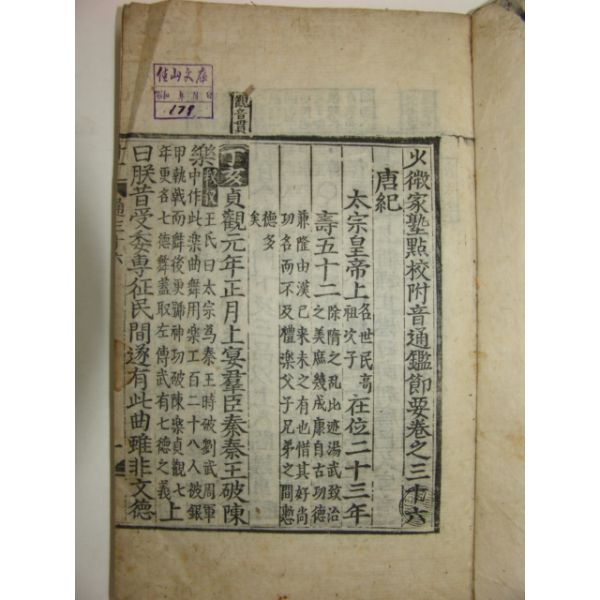 少微家塾點校附音通鑑節要卷之三十六
唐紀
太宗皇帝上名世民高祖次子在位二十三年
壽五十二除隋之亂比迹湯武致治之美庶幾成康自古功德
兼隆由漢已來未之有也惜其好尚功名而不及禮樂父子兄弟之間慙
德多矣
觀音貫
丁亥貞觀元年正月上宴羣臣奏秦王破陳
樂王氏曰太宗爲秦王時破劉武周軍中作此樂曲舞用樂工百二十八人被銀
甲執戟而舞後更號神功破陳樂貞觀七年更名七德舞蓋取左傳武有七德之義上
曰朕昔受委專征民間遂有此曲雖非文德
通三十六
一
佳山文庫
179